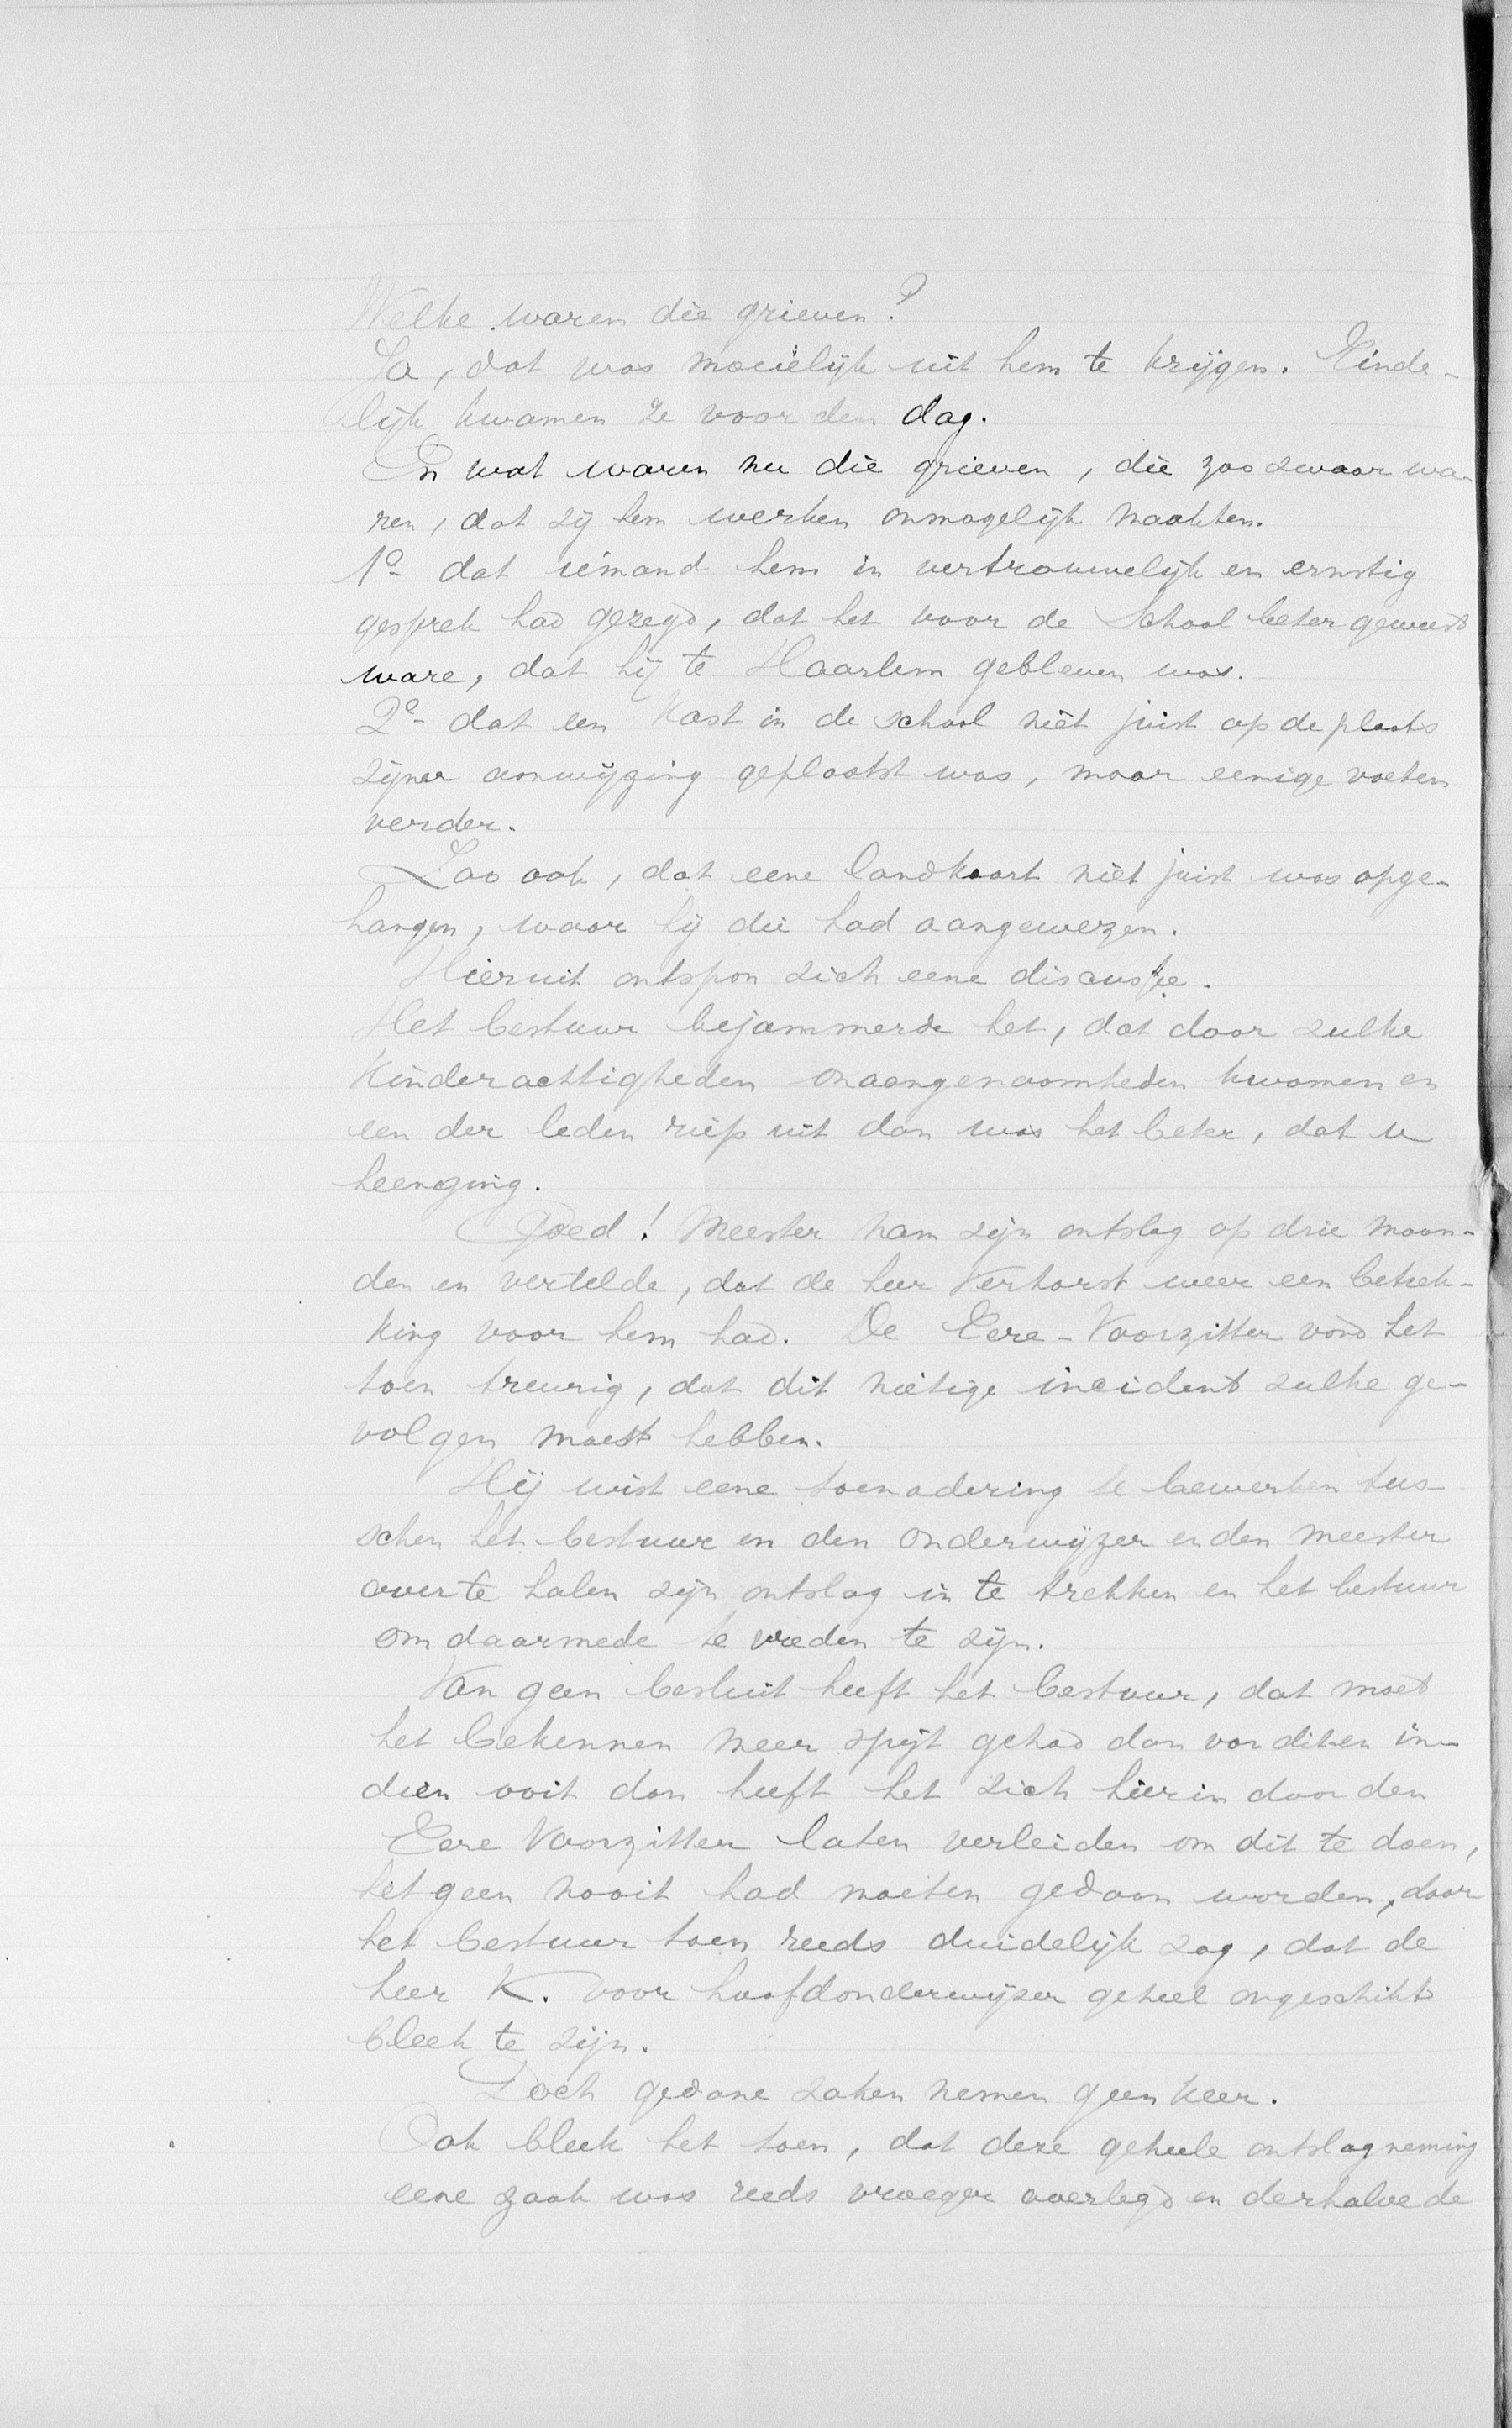 Welke waren die grieven?
Ja, dat was moeielijk uit hem te krijgen. Einde-
lijk kwamen ze voor den dag.
En wat waren nu die grieven, die zoo zwaar wa-
ren, dat zij hem werken onmogelijk maakten.
1o- dat iemand hem in vertrouwelijk en ernstig
gesprek had gezegd, dat het voor de School beter geweest
ware, dat hij te Haarlem gebleven was.
2o- dat een Kast in de school niet juist op de plaats
zijner aanwijzing geplaatst was, maar eenige voeten
verder.
Zoo ook, dat eene landkaart niet juist was opge-
hangen, waar hij die had aangewezen.
Hieruit ontspon zich eene discussie.
Het bestuur bejammerde het, dat door zulke
Kinderachtigheden onaangenaamheden kwamen en
een der leden riep uit dan was het beter, dat u
heenging.
Goed! Meester nam zijn ontslag op drie maan-
den en vertelde, dat de heer Verhorst weer een betrek-
king voor hem had. De Eere-Voorzitter vond het
toen treurig, dat dit nietige incident zulke ge-
volgen moest hebben.
Hij wist eene toenadering te bewerken tus-
schen het bestuur en den onderwijzer en den meester
over te halen zijn ontslag in te trekken en het bestuur
om daarmede te vreden te zijn.
Van geen besluit heeft het bestuur, dat moet
het bekennen meer spijt gehad dan van dit en in-
dien ooit dan heeft het zich hierin door den
Eere Voorzitter laten verleiden om dit te doen,
het geen nooit had moeten gedaan worden, daar
het bestuur toen reeds duidelijk zag, dat de
heer K. voor hoofdonderwijzer geheel ongeschikt
bleek te zijn.
Doch gedane zaken nemen geen keer.
Ook bleek het toen, dat deze geheele ontslagneming
eene zaak was reeds vroeger overlegd en derhalve de